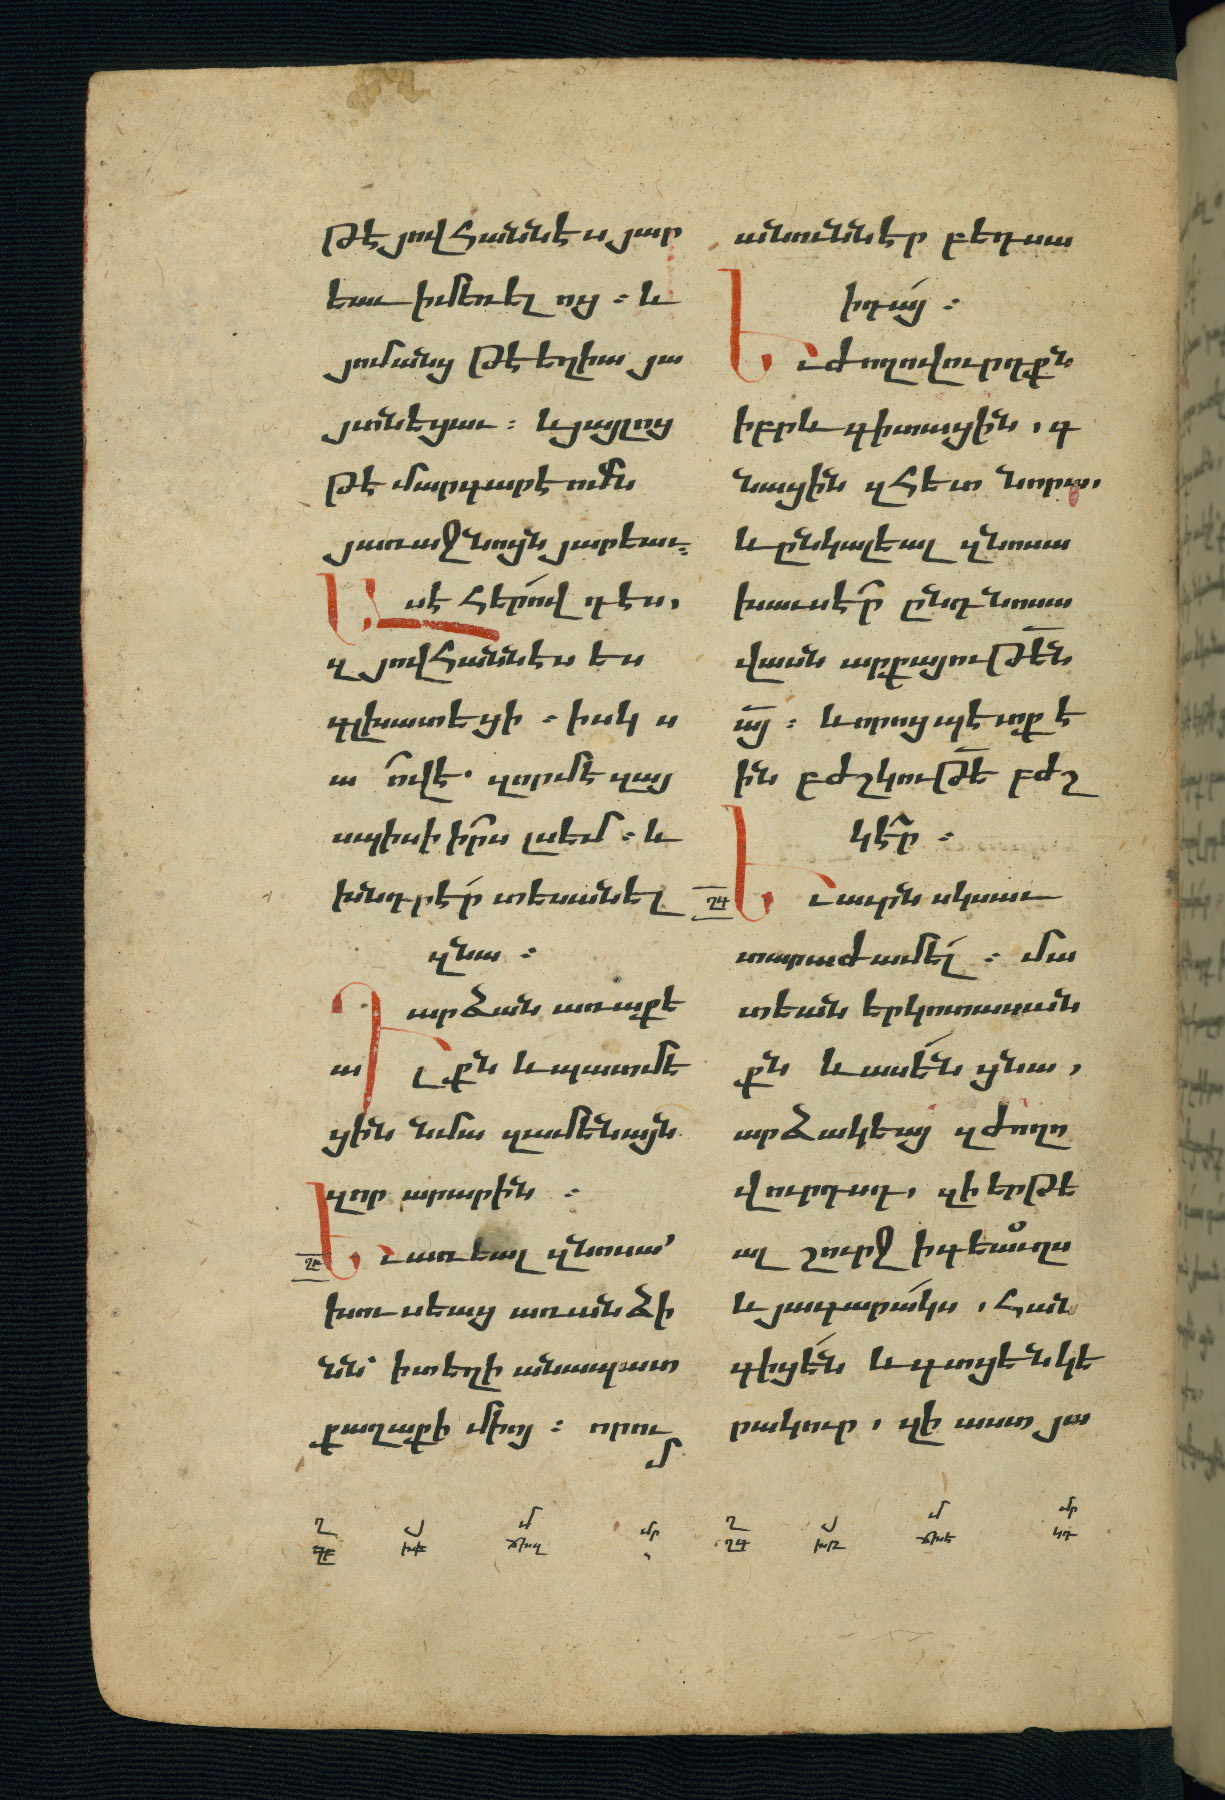 թէ յովհաննէս յար
եաւ ի մեռելոց ։ և
յոմանց թէ եղիա յա
յտնեցաւ ։ և յայլոց
թէ մարգարէ ոմն
յառաջնոցն յարեաւ ։
Ասէ հերովդէս,
զյովհաննէս ես
գլխատեցի ։ իսկ ս
ա ովէ՝ զորմէ զայ
սպիսի իրս լսեմ ։ և
խնդրէր տեսանել
զնա ։
Դարձան առաքե
ալքն և պատմե
ցին նմա զամենայն
զոր արարին ։
ՂԲ Եւ առեալ զնոսա՝
խուսեաց առանձի
նն՝ ի տեղի անապատ
քաղաքի միոյ ։ որու
մ
անունն էր բեդսա
իդայ ։
Եւ ժողովուրդքն
իբրև գիտացին, գ
նացին զհետ նորա,
և ընկալեալ զնոսա
խաւսէր ընդ նոսա
վասն արքայութեն
այ ։ և որոց պէտք է
ին բժշկութե բժշ
կէր ։
ՂԳ Եւ աւրն սկսաւ
տարաժամել ։ մա
տեան երկոտասան
քն և ասեն ցնա,
արձակեայ զժողո
վուրդսդ, զի երթե
ալ շուրջ ի գեաւղս
և յագարակս, հան
գիցեն և գտցեն կե
րակուր, զի աստ յա